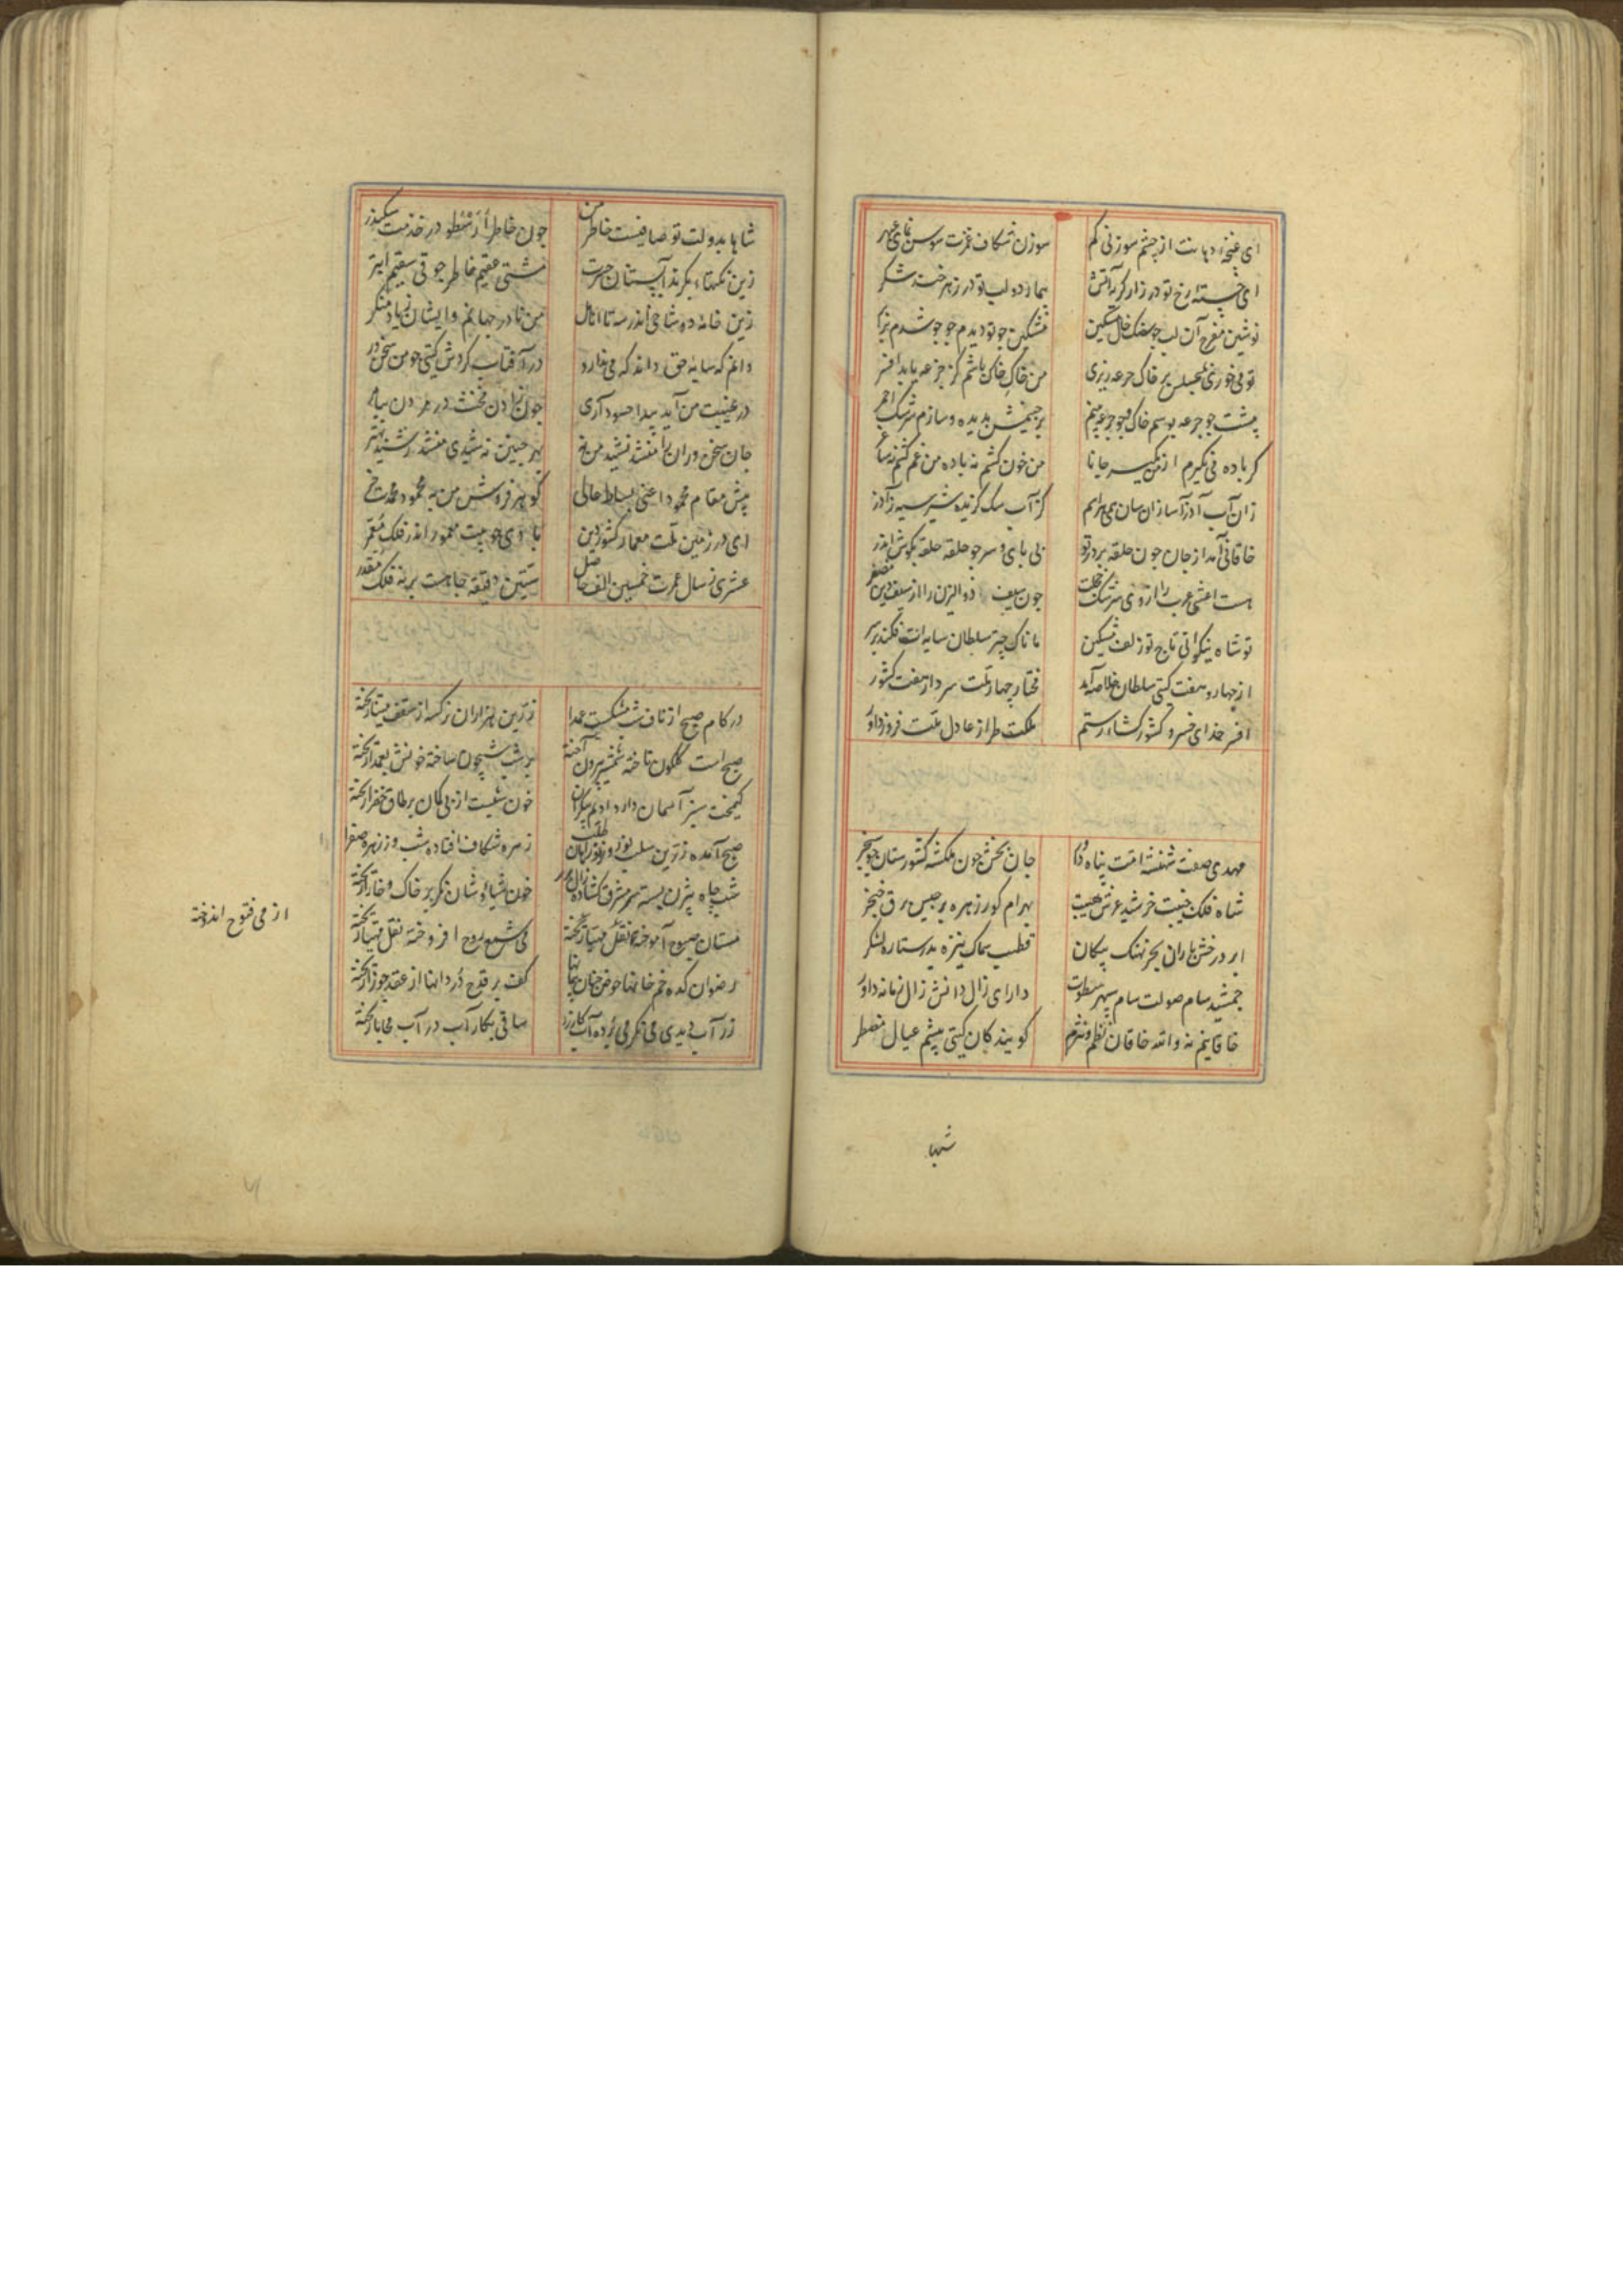 ای غنچه دهانت از چشم سوزنی کم سوزن شکاف غمزت سوسن نمای عبهر
ای خسته رخ تو در زار گریه آتش بیمار دو لب تو در زهر خند شکر
نوشین مفرح آن لب جو سنگ خال مشکین مشکین جو تو دیدم جو جو شدم برابر
تو می خوری بمجلس بر خاک جرعه ریزی من خاک خاک باشم کز جرعه یابد افسر
پیشت جو جرعه بوسم خاک و جو جرعه بینم بر جینمش بدیده وسازم سرشک احمر
کر باده می نکیرم از من مکیر جانا من خون کشم نه باده من غم کشم نه ساغر
زان آب آذرآسا زان سان همی هراسم کز آب سک کزیده شیر سیه ز آذر
خاقانی آمد از جان جون حلقه بر در تو بی بای و سر جو حلقه حلقه بکوش اندر
هست اعشی عرب را از وی سرشک خجلت جون سیف ذو الیزن را از سیف دین مظفر
تو شاه نیکوانی تاج تو زلف مشکین مانا که چتر سلطان سایه ات فکند بر سر
از چهار و هفت کیتی سلطان خلاصه آید مختار چهار ملت سردار هفت کشور
افسر خدای خسرو کشور کشا رستم ملکت طراز عادل ملت فروز داور
مهدی صفت شهنشه امت پناه داور جان بخش جون ملکشه کشورستان جو سنجر
شاه فلک جنیبت خرشید عرش هیبت بهرام کور زهره برجیس برق خنجر
ابر درخش باران بحر نهنک پیکان قطب سماک نیزه بدر ستاره لشکر
جمشید سام صولت سام سپهر سطوت دارای زال دانش زال زمانه داور
خاقانیم نه والله خاقان نظم و نثرم کویندکان کیتی پیشم عیال مضطر
شها
شاها بدولت تو صافیست خاطر من جون خاطر ارسطو در خدمت سکندر
زین نکتهاء بکرند آبستنان حسرت مشتی عقیم خاطر جوقی سقیم ابتر
من نادر جهانم وایشان نهاد منکر
دانم که سایه حق داند که می ندارد در آفتاب کردش کیتی جو من سخن ور
در غیبت من آید پیدا حسود آری جون زادن مخنث در مردن پیامبر
پیش مقام محمود اعنی بساط عالی کوهر فروش من به محمود مدحت خر
ای در زمین ملت معمار کشور دین بادی جو بیت معمور اندر فلک معمر
عشری ز سال عمرت خمسین الف حاصل ستین دقیقه جاهت بر نه فلک مقدر
در کام صبح از ناف شب مشکست عمدا ریخته زرین هزاران نرکسه از سقف مینا ریخته
صبح است کلکون تاخته شمشیر بیرون آخته بر شب شبیخون ساخته خونش بعمدا ریخته
کیمخت سبز آسمان دارد ادیم بیکران خون شبست این بی کمان بر طاق خضرا ریخته
صبح آمده زرین سلب نوروز نوراهان طلب زهره شکاف افتاده شب وز زهره صفرا ریخته
شب چاه بیژن بسته سر مشرق کشاده زال زر خون سیاوشان نکر بر خاک و خارا ریخته
مستان صبوح آموخته از می فتوح اندوخته می شمع روح افروخته نقل مهیا ریخته
رضوان کده خم خانها حوض جنان پیمانها کف بر قدح دردانها از عقد جوزا ریخته
زر آب دیدی می نکر می برده آب کار زر ساقی بکار آب در آب محابا ریخته
از می فتوح اندوخته